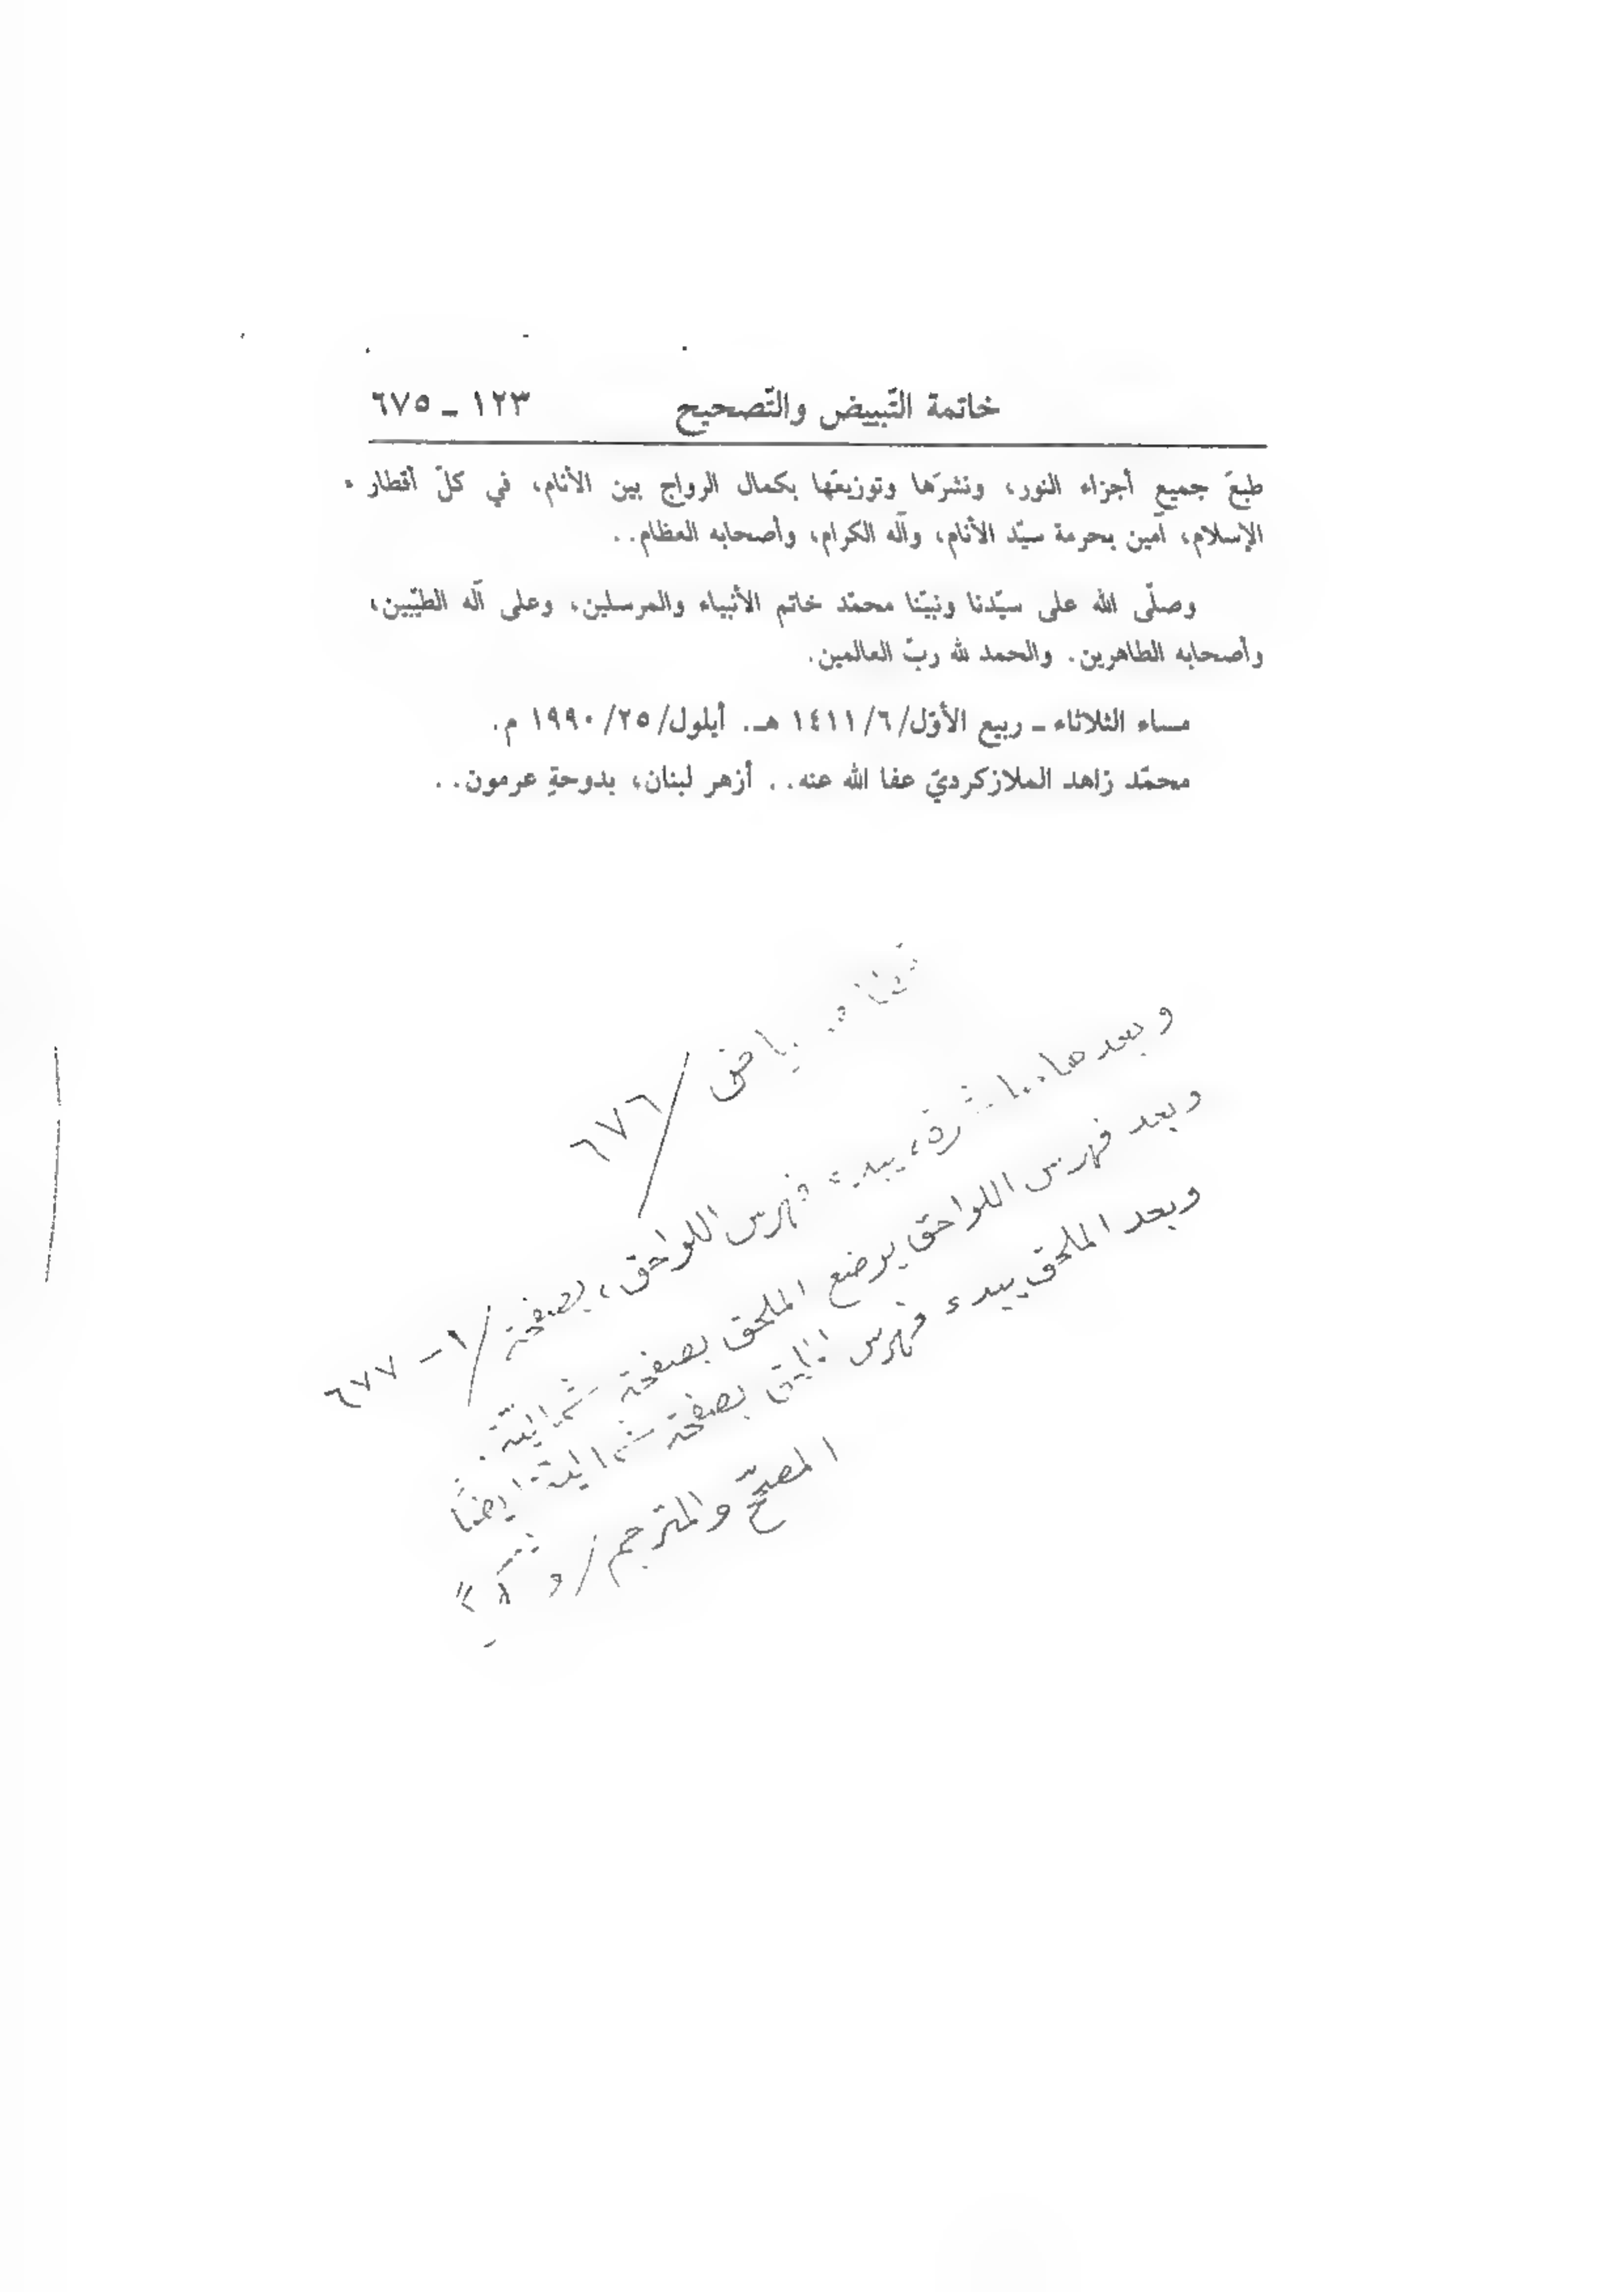 خاتمة التّبييض والتّصحيح ١٢٣ ـ ٦٧٥
طبعَ جميعِ أجزاء النور، ونشرَها وتوزيعَها بكمال الرواج بين الأنام، في كلّ أقطار
الإسلام، آمين بحرمة سيّد الأنام، وآله الكرام، وأصحابه العظام..
وصلّى الله على سيّدنا ونبيّنا محمّد خاتم الأنبياء والمرسلين، وعلى آله الطيّبين،
وأصحابه الطاهرين. والحمد لله ربّ العالمين.
مساء الثلاثاء ـ ربيع الأوّل/٦/١٤١١ هـ. أيلول/٢٥/١٩٩٠ م.
محمّد زاهد الملازكرديّ عفا الله عنه.. أزهر لبنان، بدوحةِ عرمون..
بياض /٦٧٦
وبعدها يبدء فهرس اللواحق، بصفحة /١ - ٦٧٧
وبعد فهرس اللواحق يوضع الملحق بصفحة شمالية.
وبعد الملحق يبدء فهرس بصفحة شمالية ايضًا
المصحّح والمترجم/